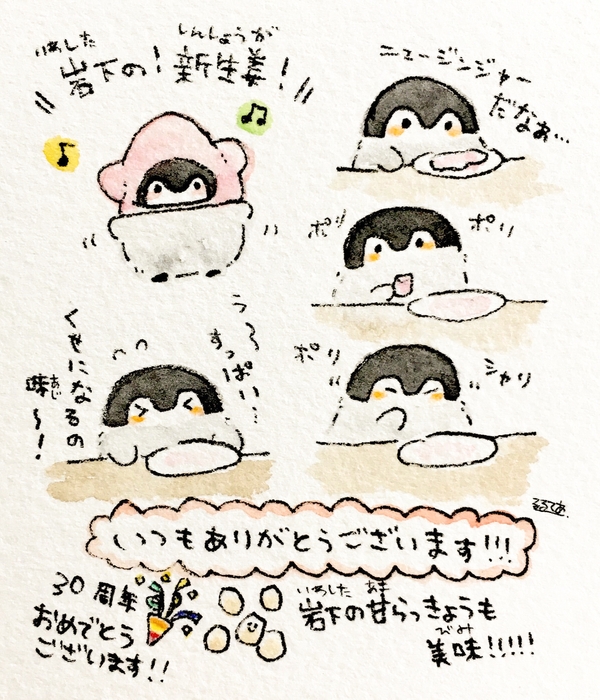 いわした しんしょうが
岩下の！新生姜！
ニュージンジャー
だなぁ…
ポリ ポリ
ポリ シャリ
う〜〜
すっぱい…
くせになるの
味〜！
あじ
いつもありがとうございます!!!
30周年
おめでとう
ございます!!
いわした あま
岩下の甘らっきょうも
びみ
美味!!!!!
るるてあ